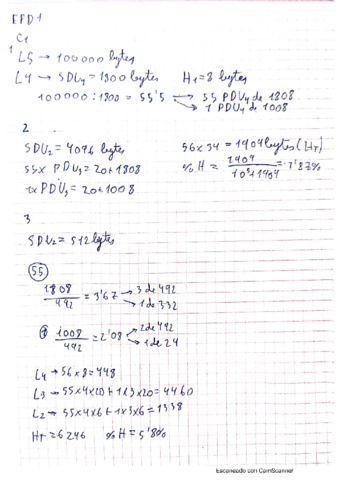 EPD1
C1
1
L5 → 100000 bytes
L4 → SDU4 = 1800 bytes H1 = 8 bytes
100000 : 1800 = 55'5 → 55 PDU4 de 1808
→ 1 PDU4 de 1008
2
SDU2 = 4096 bytes 56 x 34 = 1904 bytes (HT)
55 x PDU3 = 20 + 1808 % H = 1904 / 10^5 + 1904 = 1'87%
1x PDU3 = 20 + 1008
3
SDU2 = 512 bytes
55
1808 / 492 = 3'67 → 3 de 492
→ 1 de 332
1 1008 / 492 = 2'08 → 2 de 492
→ 1 de 24
L4 → 56 x 8 = 448
L3 → 55x4x20 + 1x3x20 = 4460
L2 → 55x4x6 + 1x3x6 = 1338
HT = 6246 % H = 5'8%
Escaneado con CamScanner